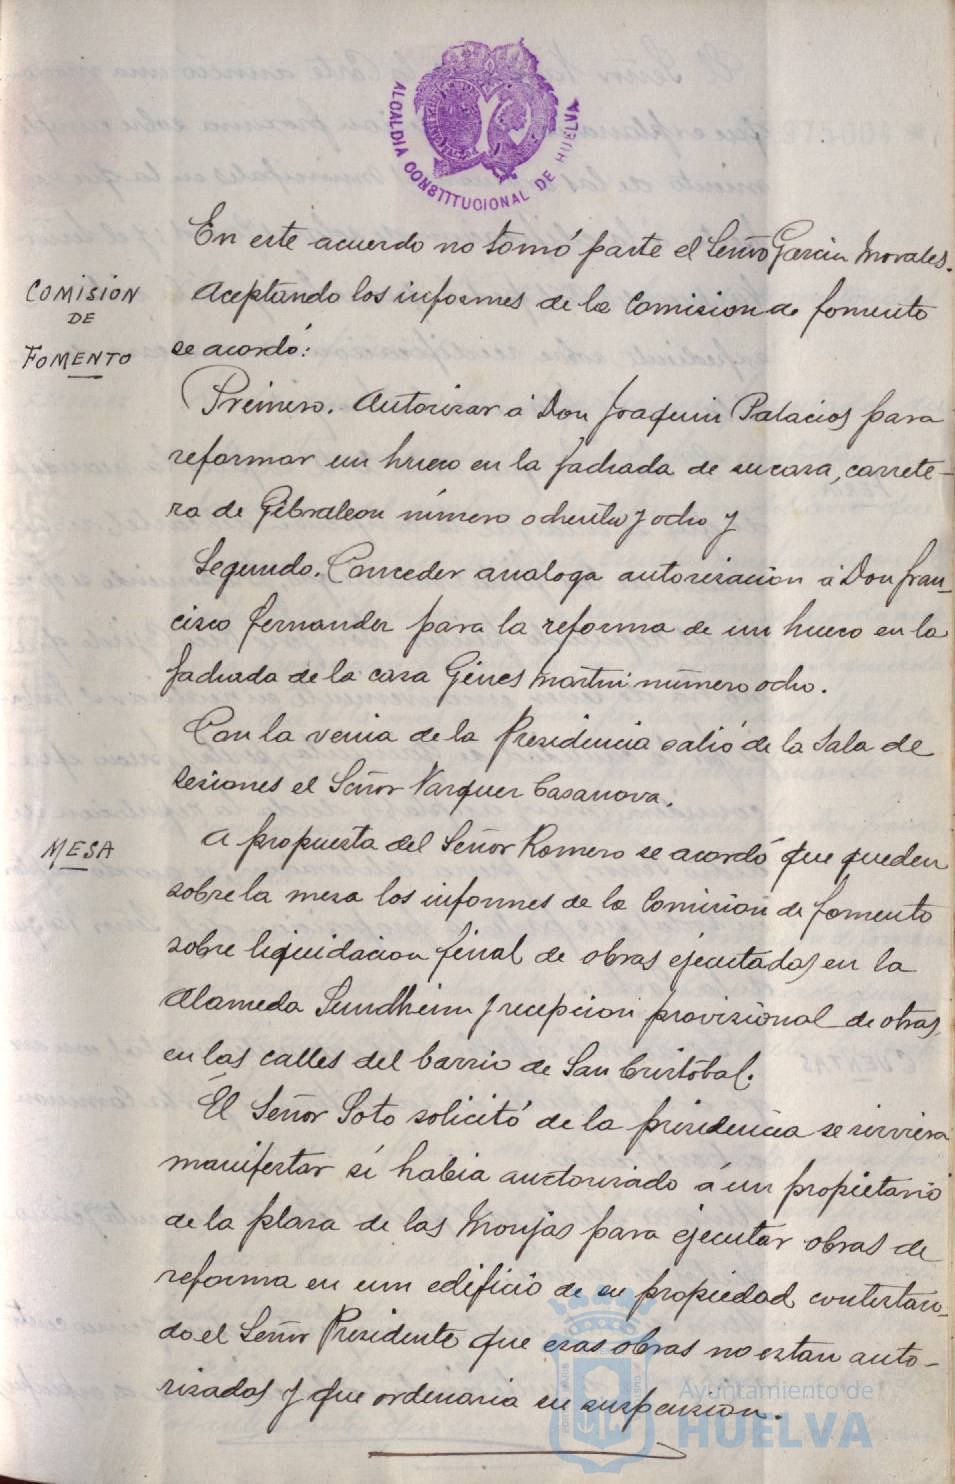 ALCALDIA CONSTITUCIONAL DE HUELVA
En este acuerdo no tomó parte el Señor Garcia Morales.
COMISION
DE
FOMENTO
Aceptando los informes de la Comision de fomento
se acordó:
Primero. Autorizar á Don Joaquin Palacios para
reformar un hueco en la fachada de su casa, carrete-
ra de Gibraleon número ochenta y ocho y
Segundo. Conceder analoga autorizacion á Don Fran-
cisco Fernandez para la reforma de un hueco en la
fachada de la casa Ginés Martin número ocho.
Con la venia de la Presidencia salió de la Sala de
Sesiones el Señor Vazquez Casanova.
MESA
A propuesta del Señor Romero se acordó que queden
sobre la mesa los informes de la Comision de fomento
sobre liquidacion final de obras ejecutadas en la
Alameda Sundheim y recepcion provisional de obras
en las calles del barrio de San Cristóbal.
El Señor Soto solicitó de la presidencia se sirviera
manifestar si habia auctorizado á un propietario
de la plaza de las Monjas para ejecutar obras de
reforma en un edificio de su propiedad contestan-
do el Señor Presidente que esas obras no estan auto-
rizadas y que ordenaria su suspension.
Ayuntamiento de
HUELVA